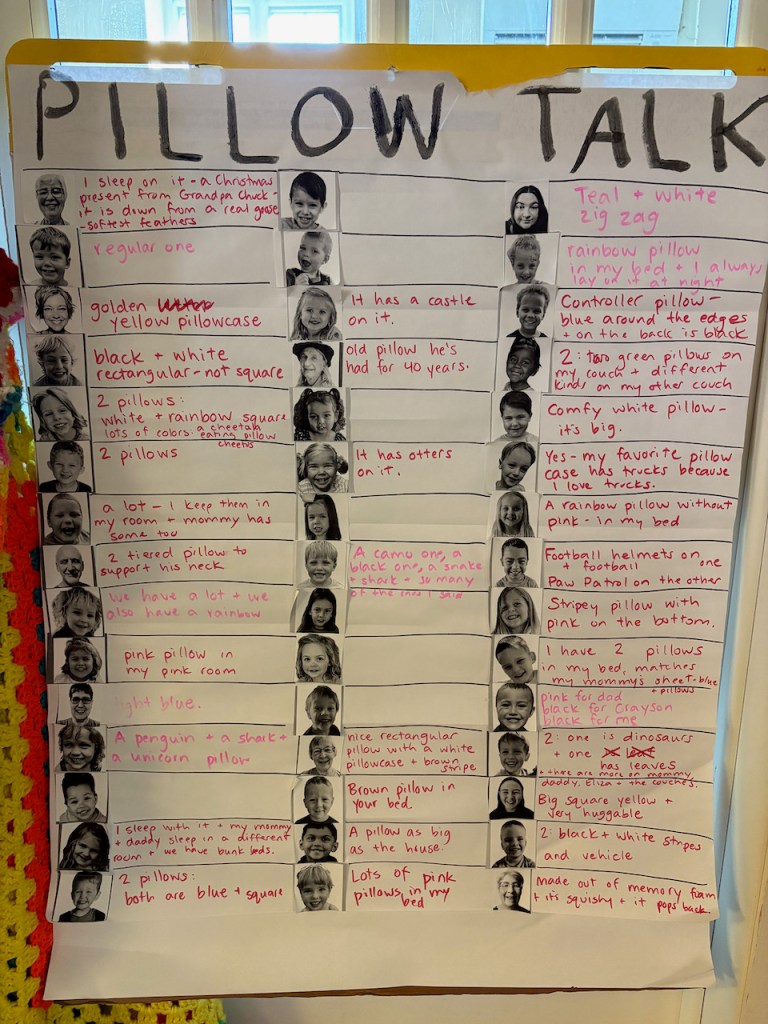 PILLOW TALK
I sleep on it - a Christmas
present from Grandpa Chuck -
it is down from a real goose
- softest feathers
regular one
golden
yellow pillowcase
black + white
rectangular - not square
2 pillows:
white + rainbow square
lots of colors: a cheetah
eating pillow
cheetos
2 pillows
a lot - I keep them in
my room + mommy has
some too
2 tiered pillow to
support his neck
we have a lot + we
also have a rainbow
pink pillow in
my pink room
light blue.
A penguin + a shark +
a unicorn pillow
I sleep with it + my mommy
+ daddy sleep in a different
room + we have bunk beds.
2 pillows:
both are blue + square
It has a castle
on it.
old pillow he's
had for 40 years.
It has otters
on it.
A camo one, a
black one, a snake
+ shark - so many
of the ones I said
nice rectangular
pillow with a white
pillowcase + brown
stripe
Brown pillow in
your bed.
A pillow as big
as the house.
Lots of pink
pillows in my
bed
Teal + white
zig zag
rainbow pillow
in my bed + I always
lay on it at night
Controller pillow -
blue around the edges
+ on the back is black
2: two green pillows on
my couch + different
kinds on my other couch
Comfy white pillow -
it's big.
Yes - my favorite pillow
case has trucks because
I love trucks.
A rainbow pillow without
pink - in my bed
Football helmets on
+ football one
Paw Patrol on the other
Stripey pillow with
pink on the bottom.
I have 2 pillows
in my bed, matches
my mommy's sheet - blue
+ pillows
pink for dad
black for Grayson
black for me
2: one is dinosaurs
+ one
has leaves
+ there are more on mommy,
daddy, Eliza + the couches.
Big square yellow +
very huggable
2: black + white stripes
and vehicle
Made out of memory foam
+ it's squishy + it pops back